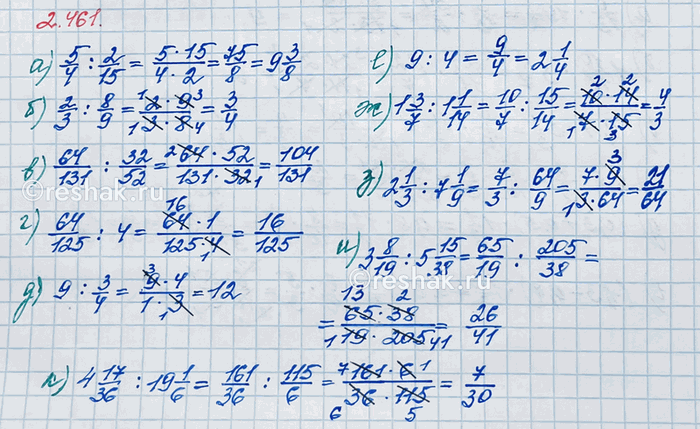 2.461.
а) 5/4 : 2/15 = (5·15)/(4·2) = 75/8 = 9 3/8
б) 2/3 : 8/9 = (2·9)/(3·8) = 3/4
в) 64/131 : 32/52 = (64·52)/(131·32) = 104/131
г) 64/125 : 4 = (64·1)/(125·4) = 16/125
д) 9 : 3/4 = (9·4)/(1·3) = 12
е) 9 : 4 = 9/4 = 2 1/4
ж) 1 3/7 : 1 1/14 = 10/7 : 15/14 = (10·14)/(7·15) = 4/3
з) 2 1/3 : 7 1/9 = 7/3 : 64/9 = (7·9)/(3·64) = 21/64
и) 3 8/19 : 5 15/38 = 65/19 : 205/38 =
= (65·38)/(19·205) = 26/41
к) 4 17/36 : 19 1/6 = 161/36 : 115/6 = (161·6)/(36·115) = 7/30
reshak.ru